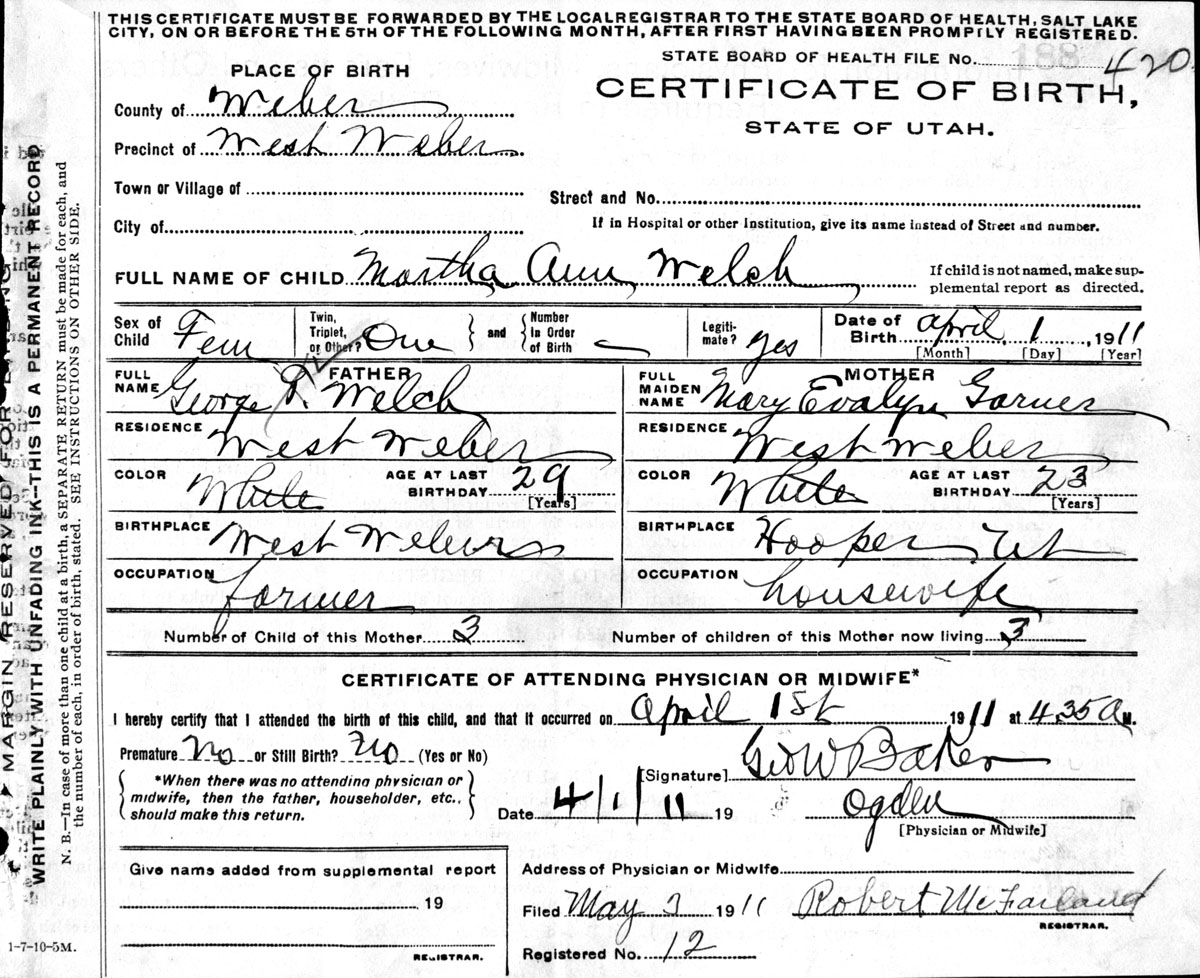 THIS CERTIFICATE MUST BE FORWARDED BY THE LOCAL REGISTRAR TO THE STATE BOARD OF HEALTH, SALT LAKE
CITY, ON OR BEFORE THE 5TH OF THE FOLLOWING MONTH, AFTER FIRST HAVING BEEN PROMPTLY REGISTERED.
STATE BOARD OF HEALTH FILE No. 188 420
PLACE OF BIRTH
CERTIFICATE OF BIRTH,
STATE OF UTAH.
County of Weber
Precinct of West Weber
Town or Village of
Street and No.
City of
If in Hospital or other Institution, give its name instead of Street and number.
FULL NAME OF CHILD Martha Ann Welch
If child is not named, make sup-
plemental report as directed.
Sex of Child Fem
Twin, Triplet, or Other? One and Number in Order of Birth —
Legiti-mate? yes
Date of Birth April 1, 1911
[Month] [Day] [Year]
FATHER
FULL NAME George T. Welch
RESIDENCE West Weber
COLOR White AGE AT LAST BIRTHDAY 29 [Years]
BIRTHPLACE West Weber
OCCUPATION farmer
MOTHER
FULL MAIDEN NAME Mary Evalyn Garner
RESIDENCE West Weber
COLOR White AGE AT LAST BIRTHDAY 23 [Years]
BIRTHPLACE Hooper Ut
OCCUPATION housewife
Number of Child of this Mother 3 Number of children of this Mother now living 3
CERTIFICATE OF ATTENDING PHYSICIAN OR MIDWIFE*
I hereby certify that I attended the birth of this child, and that it occurred on April 1st, 1911 at 4.35 A M.
Premature No or Still Birth? No (Yes or No)
*When there was no attending physician or
midwife, then the father, householder, etc.,
should make this return.
[Signature] Geo W Baker
Date 4/1/11 19 Ogden
[Physician or Midwife]
Give name added from supplemental report
19
REGISTRAR.
Address of Physician or Midwife
Filed May 3 1911 Robert McFarland
REGISTRAR.
Registered No. 12
1-7-10-5M.
MARGIN RESERVED FOR
WRITE PLAINLY WITH UNFADING INK—THIS IS A PERMANENT RECORD
N. B.—In case of more than one child at a birth, a SEPARATE RETURN must be made for each, and
the number of each, in order of birth, stated. SEE INSTRUCTIONS ON OTHER SIDE.